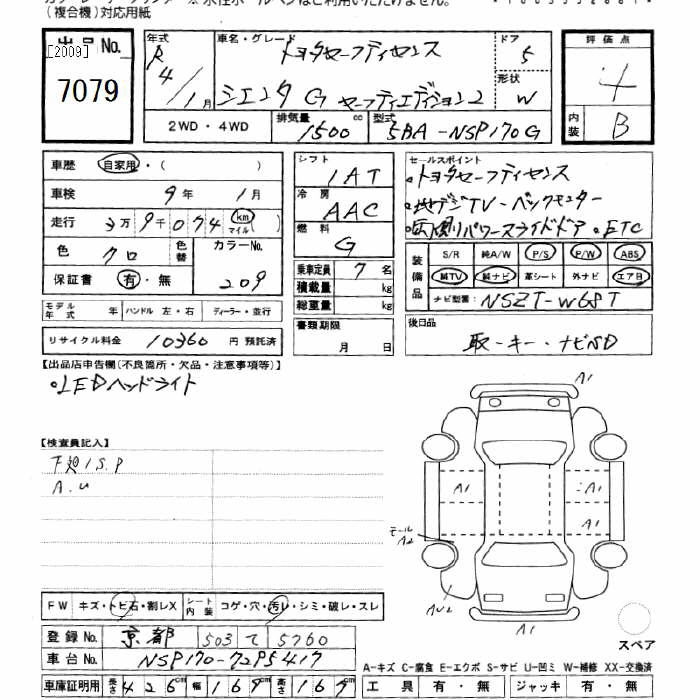 (複合機)対応用紙
出品No.
[2009]
7079
年式
R4/1月
車名・グレード
トヨタセーフティセンス
シエンタ G セーフティエディション2
ドア
5
形状
W
2WD・4WD
排気量
1500 cc
型式
5BA-NSP170G
評価点
4
内装
B
車歴 自家用・( )
車検 9年 1月
走行 3万9千074 (km マイル)
色 クロ 色替 カラーNo.
209
保証書 有・無
モデル年式 年 ハンドル 左・右 ディーラー・並行
リサイクル料金 10360 円 預託済
シフト
1AT
冷房
AAC
燃料
G
乗車定員 7 名
積載量 kg
総重量 kg
書類期限
月 日
セールスポイント
・トヨタセーフティセンス
・地デジTV・バックモニター
・両側パワースライドドア・ETC
装備品
S/R 純A/W P/S P/W ABS
純TV 純ナビ 革シート 外ナビ エア日
ナビ型番: NSZT-W68T
後日品
取・キー・ナビSD
【出品店申告欄(不良箇所・欠品・注意事項等)】
・LEDヘッドライト
【検査員記入】
下廻りS.P
A.U
A1
A1
A1
A1
モール
A2
AU2
A1
スペア
FW キズ・トビ石・割レX シート内装 コゲ・穴・汚レ・シミ・破レ・スレ
登録No. 京都 503 て 5760
車台No. NSP170-7295417
車庫証明用 長さ 426cm 幅 169cm 高さ 167cm
A-キズ C-腐食 E-エクボ S-サビ U-凹ミ W-補修 XX-交換済
工具 有・無 ジャッキ 有・無